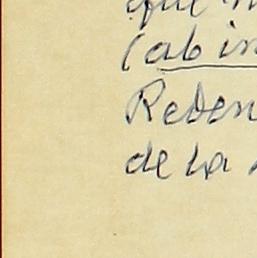 que
(ab in
Reden
de la